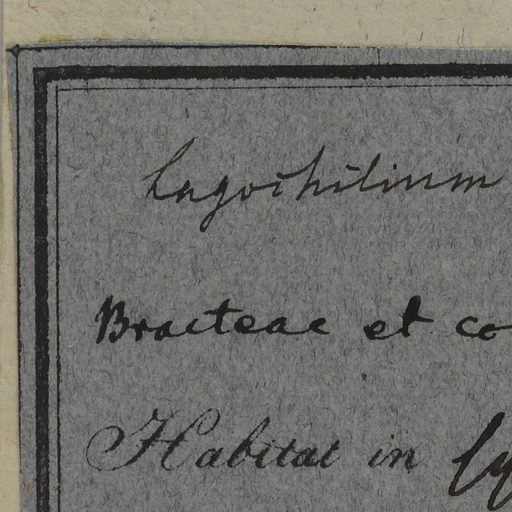 Lagochilium
Bracteae et co
Habitat in